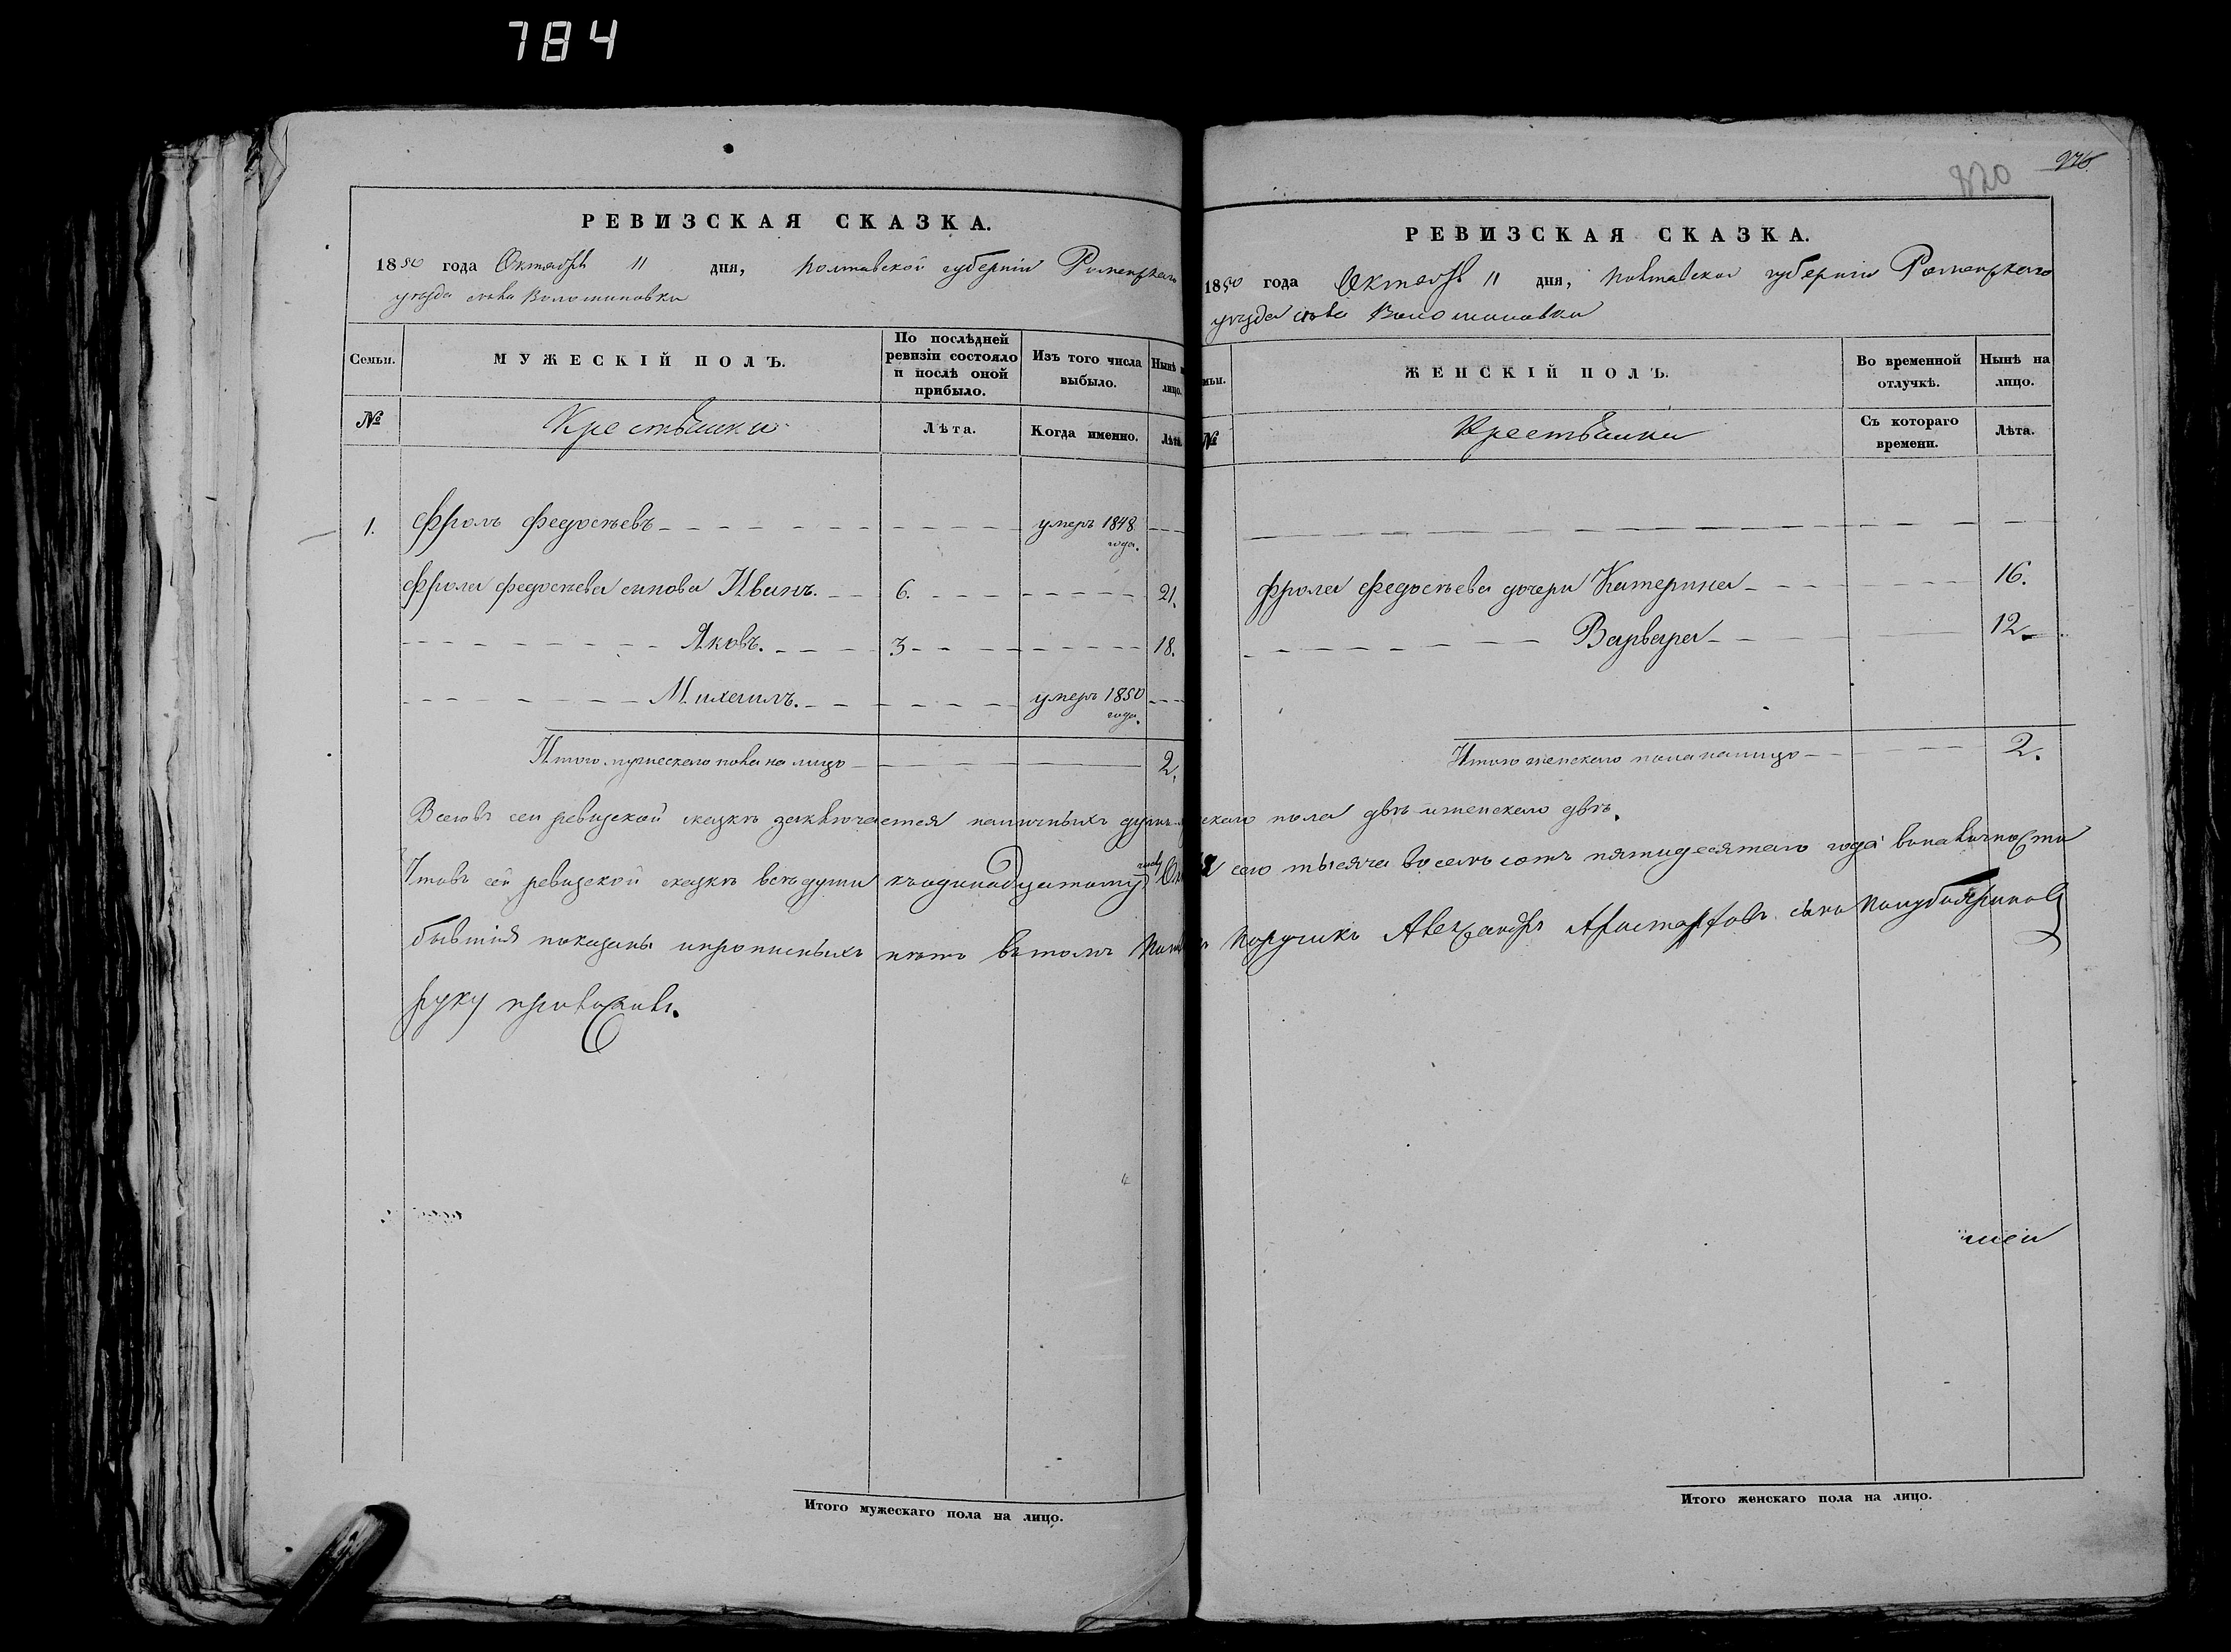 784
РЕВИЗСКАЯ СКАЗКА.
1850 года Октября 11 дня, Полтавской губерніи Роменскаго
уезда села Волошиновки
Семьи.
МУЖЕСКІЙ ПОЛЪ.
По послѣдней ревизіи состояло и послѣ оной прибыло.
Изъ того числа выбыло.
Нынѣ на лицо.
№
Крестьянки
Лѣта.
Когда именно.
Лѣта.
1. Фролъ Федосѣевъ умеръ 1848 года.
Фрола Федосѣева синова Иванъ. 6. 21.
Яковъ. 3 18.
Михаилъ. умеръ 1850 года.
Итого мужескаго пола на лицо 2.
820
976
РЕВИЗСКАЯ СКАЗКА.
1850 года Октября 11 дня, Полтавской губерніи Роменскаго
уезда села Волошиновки
ЖЕНСКІЙ ПОЛЪ.
Во временной отлучкѣ.
Нынѣ на лицо.
№
Крестьянки
Съ котораго времени.
Лѣта.
Фрола Федосѣева дочери Катерина 16.
Варвара 12.
Итого женскаго пола налицо 2.
Всего въ сей ревизской сказкѣ заключается наличныхъ душъ мужескаго пола двѣ и женскаго двѣ.
Что въ сей ревизской сказкѣ всѣ души къ одинадцатому числу Октября сего тысяча восемь сотъ пятидесятаго года в наличности
бывшія показаны и прописныхъ нетъ въ томъ Поручикъ Александръ Аристарховъ сынъ
руку приложилъ.
Итого мужескаго пола на лицо.
Итого женскаго пола на лицо.